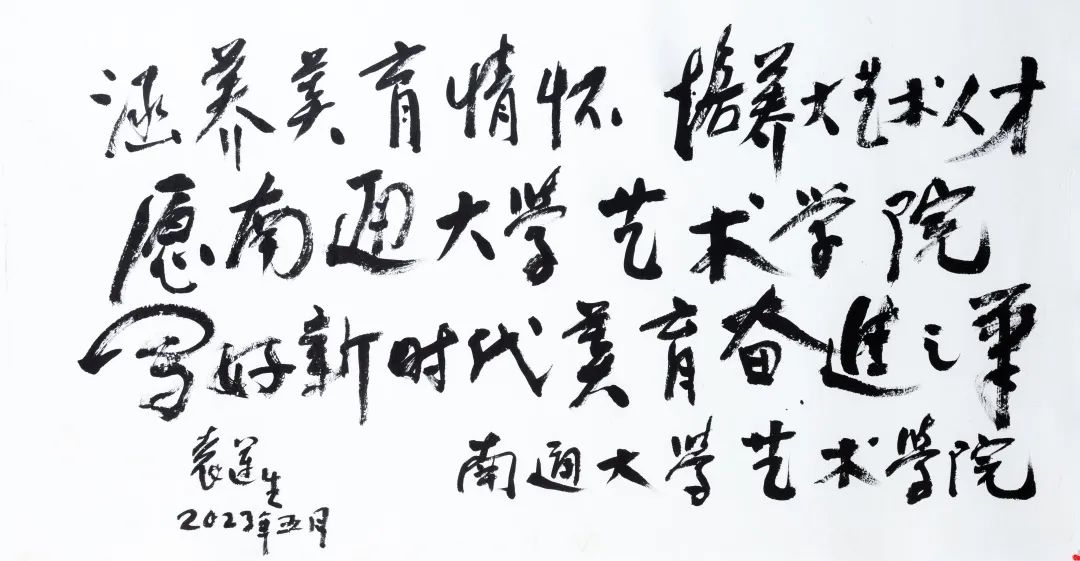 涵养美育情怀 培养大艺术人才
愿南通大学艺术学院
写好新时代美育奋進之筆
南通大學艺术學院
袁莲生
2023年五月